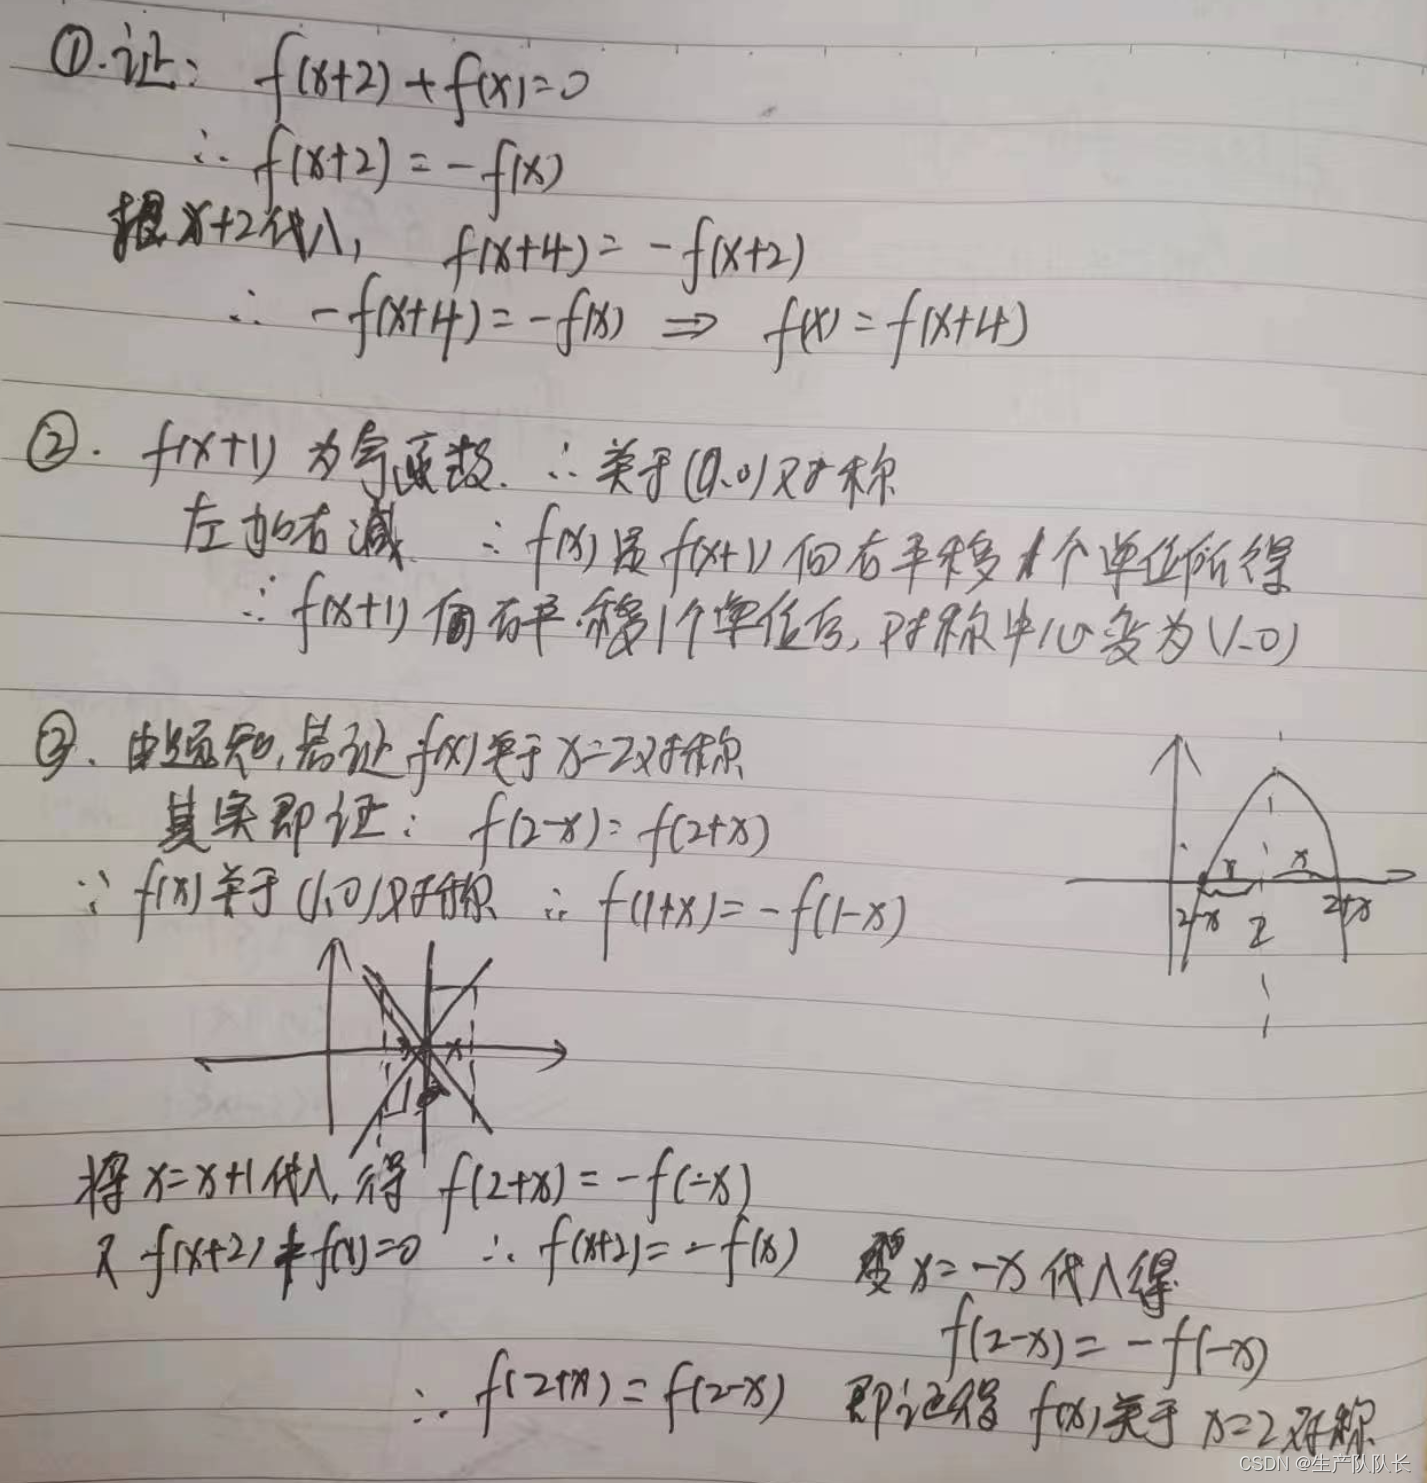 ①.证: f(x+2)+f(x)=0
∴ f(x+2)=-f(x)
把x+2代入, f(x+4)=-f(x+2)
∴ -f(x+4)=-f(x) ⇒ f(x)=f(x+4)
②. f(x+1)为奇函数. ∴关于(0,0)对称
左加右减 ∴ f(x)是f(x+1)向右平移1个单位所得
∴ f(x+1)向右平移1个单位后,对称中心变为(1,0)
③. 由题知,若证f(x)关于x=2对称
其实即证: f(2-x)=f(2+x)
∵ f(x)关于(1,0)对称 ∴ f(1+x)=-f(1-x)
x x
2-x 2 2+x
x
将x=x+1代入,得 f(2+x)=-f(-x)
又 f(x+2)+f(x)=0 ∴ f(x+2)=-f(x) x=-x代入得
f(2-x)=-f(-x)
∴ f(2+x)=f(2-x) 即证得 f(x)关于x=2对称
CSDN @生产队队长